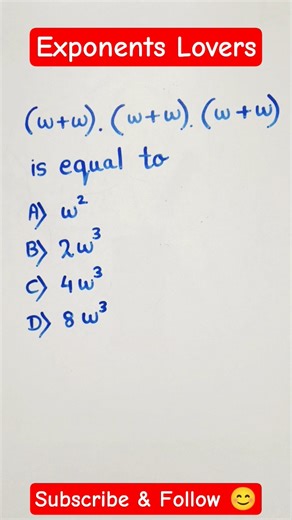 Exponents Lovers
(w+w).(w+w).(w+w)
is equal to
A) w²
B) 2w³
C) 4w³
D) 8w³
Subscribe & Follow 😊